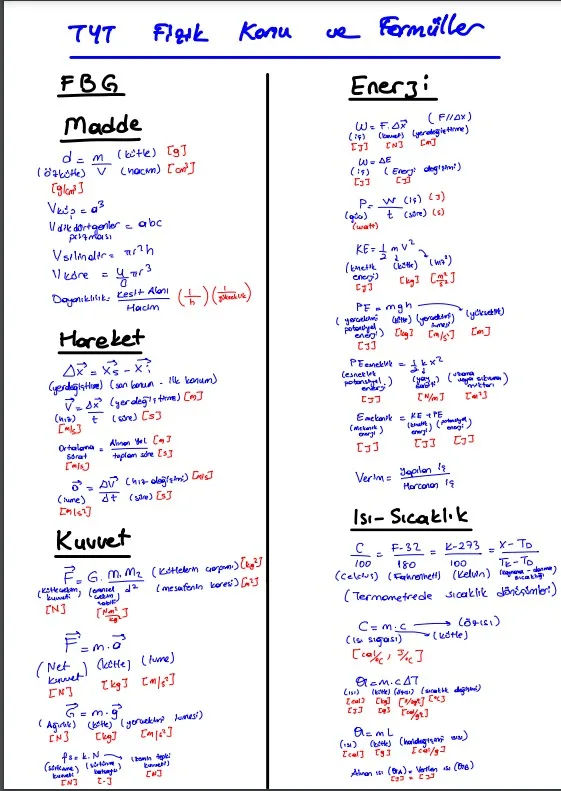 TYT Fizik Konu ve Formüller
FBG
Madde
d = m (kütle) [g]
(özkütle) V (hacim) [cm³]
[g/cm³]
Vküp = a³
Vdikdörtgenler = abc
prizması
Vsilindir = πr²h
Vküre = 4/3 πr³
Dayanıklılık = Kesit Alanı / Hacim (1/h) (1/yükseklik)
Hareket
Δx = xs - xi
(yerdeğiştirme) (son konum - ilk konum)
V = Δx (yerdeğiştirme) [m]
(hız) t (süre) [s]
[m/s]
Ortalama = Alınan Yol [m]
sürat toplam süre [s]
[m/s]
a = ΔV (hız değişimi) [m/s]
(ivme) Δt (süre) [s]
[m/s²]
Kuvvet
F = G. m₁ m₂ (kütlelerin çarpımı) [kg²]
(kütleçekim kuvveti) (evrensel çekim sabiti) d² (mesafenin karesi) [m²]
[N] [Nm²/kg²]
F = m.a
(Net kuvvet) (kütle) (ivme)
[N] [kg] [m/s²]
G = m.g
(Ağırlık) (kütle) (yerçekimi ivmesi)
[N] [kg] [m/s²]
fs = k.N
(sürtünme kuvveti) (sürtünme katsayısı) (zemin tepki kuvveti)
[N] [-] [N]
Enerji
W = F.Δx (F//Δx)
(iş) (kuvvet) (yerdeğiştirme)
[J] [N] [m]
W = ΔE
(iş) (Enerji değişimi)
[J] [J]
P = W (iş) (J)
(güç) t (süre) (s)
(watt)
KE = 1/2 m V²
(kinetik enerji) (kütle) (hız²)
[J] [kg] [m²/s²]
PE = mgh
(yerçekimi potansiyel enerji) (kütle) (yerçekimi ivmesi) (yükseklik)
[J] [kg] [m/s²] [m]
PEesneklik = 1/2 kx²
(esneklik potansiyel enerji) (yay sabiti) (uzama veya sıkışma miktarı)
[J] [N/m] [m²]
Emekanik = KE + PE
(mekanik enerji) (kinetik enerji) (potansiyel enerji)
[J] [J] [J]
Verim = Yapılan iş / Harcanan iş
Isı-Sıcaklık
C/100 = F-32/180 = K-273/100 = X-TD/TK-TD
(Celcius) (Fahrenheit) (Kelvin) (kaynama-donma sıcaklığı)
(Termometrede sıcaklık dönüşümleri)
C = m.c → (öz ısı)
(ısı sığası) (kütle)
[cal/°C, J/°C]
Q = m.cΔT
(ısı) (kütle) (özısı) (sıcaklık değişimi)
[cal] [kg] [°C]
[J] [g]
Q = mL
(ısı) (kütle) (haldeğişimi ısısı)
[cal] [g] [cal/g]
Alınan ısı (QA) = Verilen ısı (QB)
[J] = [J]